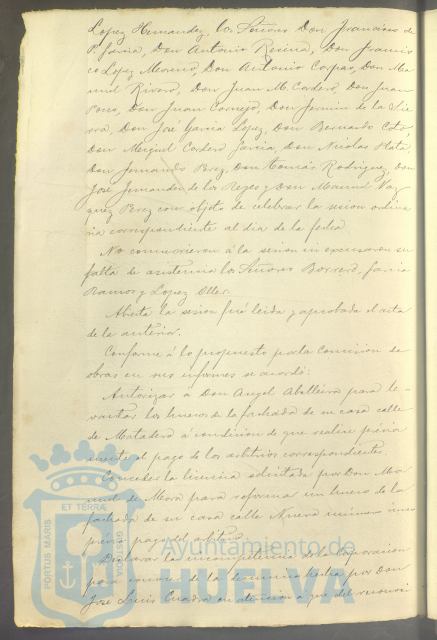 Lopez Hernandez, los Señores Don Francisco de
P. Garcia, Don Antonio Resina, Don Francis
co Lopez Moreno, Don Antonio Carpas, Don Ma
nuel Rivero, Don Juan M. Cordero, Don Juan
Don Juan Cornejo, Don Fermin de la Sie
rra, Don José Garcia Lopez, Don Bernardo Coto,
Don Miguel Cordero Garcia, Don Nicolas Mata,
Don Fernando Don Tomás Rodriguez, Don
José Fernandez de los Reyes y Don Manuel Vaz
quez Perez con objeto de celebrar la sesion ordina
ria correspondiente al dia de la fecha
No concurrieron á la sesion ni excusaron su
falta de asistencia los Señores Borrero, Garcia
Ramos y Lopez
Abierta la sesion fué leida y aprobada el acta
de la anterior.
Conforme á lo propuesto por la Comision de
obras en sus informes se acordó:
Autorizar a Don Angel Abelleira para le-
vantar los huecos de la fachada de su casa calle
de Matadero á condicion de que realice previa
mente el pago de los arbitrios correspondientes.
Conceder la licencia solicitada por Don Ma
nuel de Mora para reformar un hueco de la
fachada de su casa calle Nueva número
prévio pago del arbitrio.
Declarar la incompetencia de la Corporacion
para conocer de la denuncia hecha por Don
José Luis Cuadra en atencion a que del reconoci
PORTUS MARIS
ET TERRÆ
CUSTODIA
Ayuntamiento de
HUELVA